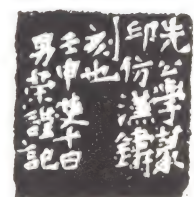 先公學篆
印仿漢鑄
刻也
壬申十日
男榮證記